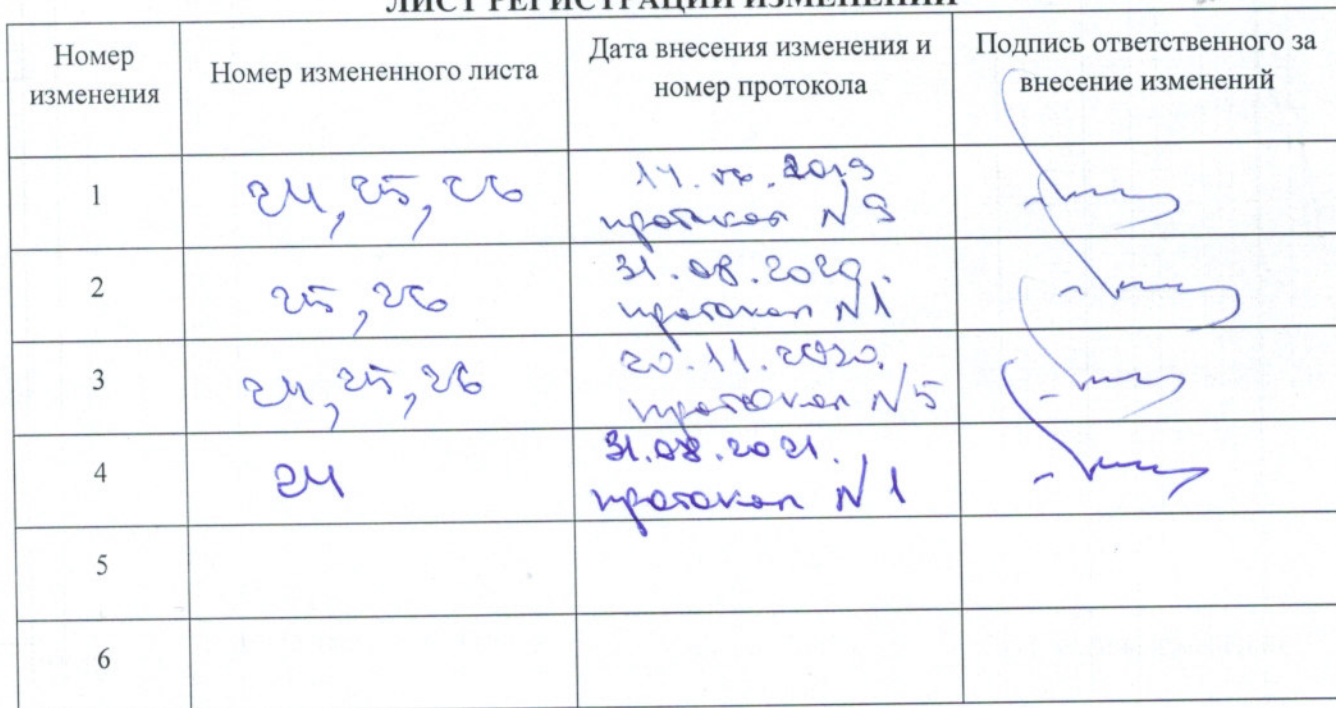 ЛИСТ РЕГИСТРАЦИИ ИЗМЕНЕНИЙ
Номер изменения
Номер измененного листа
Дата внесения изменения и номер протокола
Подпись ответственного за внесение изменений
1
24, 25, 26
2019
протокол №9
2
25, 26
31.08.2020.
протокол №1
3
24, 25, 26
20.11.2020.
протокол №5
4
24
31.08.2021.
протокол №1
5
6